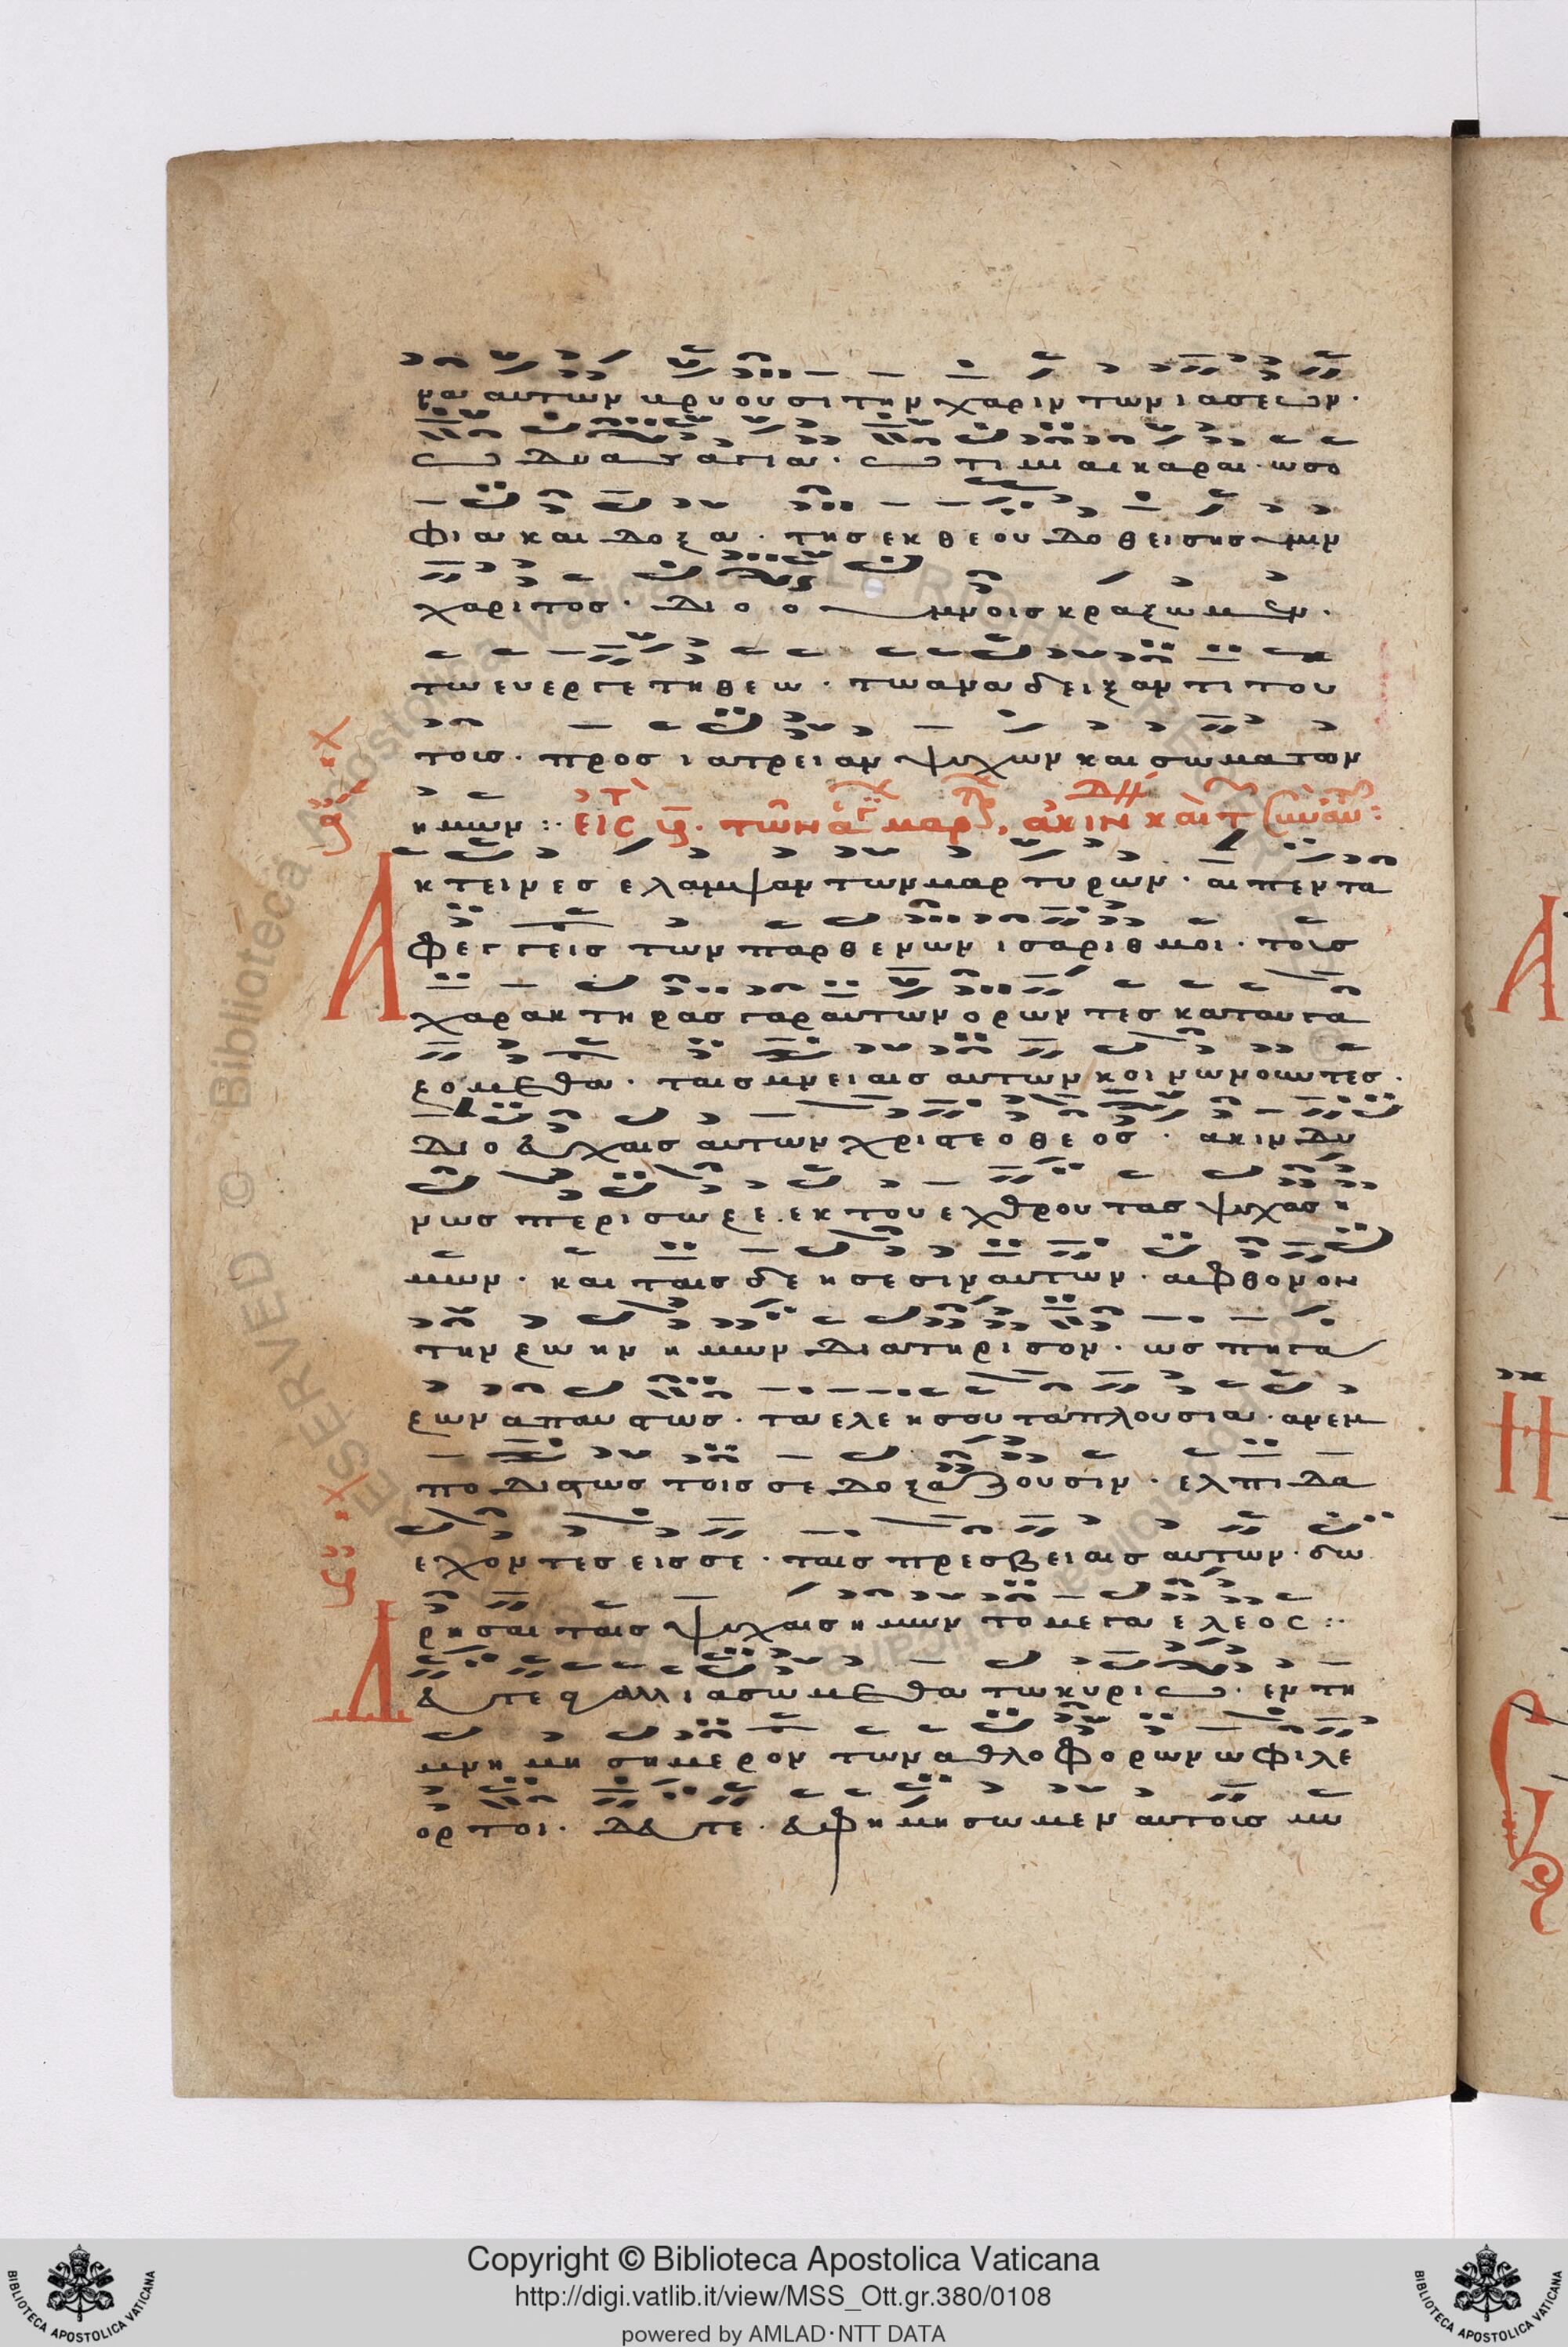 μα αυτων αρυουσι την χαριν των ιασεων ·
ω δυας αγια · ω τιμιαι καραι · ω σο
φια και δοξα · της εκ θεου δοθεισης υμιν
χαριτος · διο υμνοις κραζωμεν ·
τω ευεργετη θεω · τω αναδειξαντι του
τοις · προς ιατρειαν ψυχων και σωματων
ημων :·
Ακτεινες ελαμψαν των μαρτυρων · αι πεντα
φεγγεις των παρθενων ισαριθμοι · τοις
χαρακτηρας γαρ αυτων ορωντες καταυγα
ζομεθα · ταις μνειαις αυτων κοινωνουντες ·
διο ευχαις αυτων χριστε ο θεος · ακινδυ
νως περισωζε · εκ του εχθρου τας ψυχας η
μων · και ταις δεησεσιν αυτων · αφθονον
την ζωην ημων διατηρισον · ως πηγα
ζων απαυστως · τα ελεη σου τα πλουσια · ανεμ
ποδιστως τοις σε δοξαζουσιν · ελπιδα
εχοντες εις σε · ταις πρεσβειαις αυτων · δω
ρησαι ταις ψυχαις ημων το μεγα ελεος :·
Δευτε αγαλλιασωμεθα τω κυριω · εν τη
μνημη σημερον των αθλοφορων ω φιλε
ορτοι · δευτε · ευφημησωμεν αυτοις
Copyright © Biblioteca Apostolica Vaticana
http://digi.vatlib.it/view/MSS_Ott.gr.380/0108
powered by AMLAD·NTT DATA